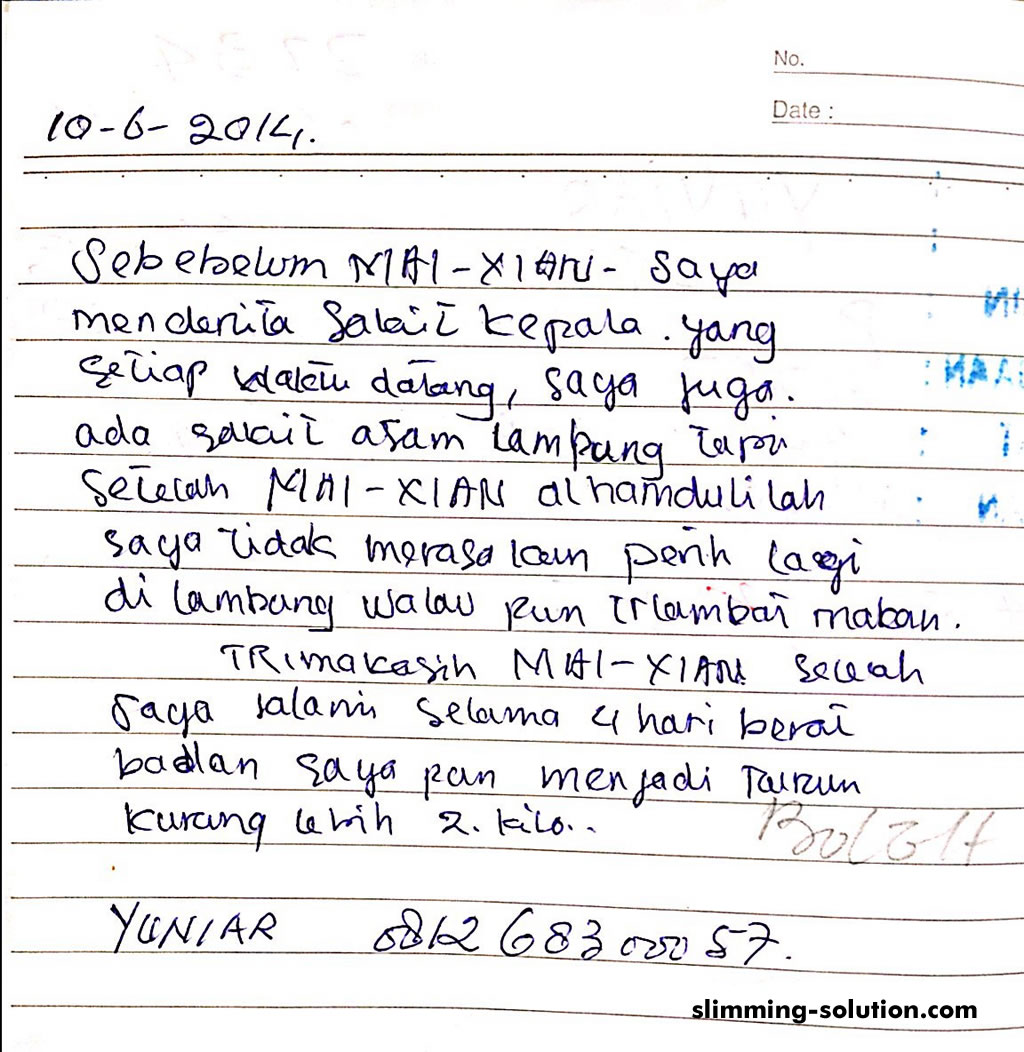 No.
Date :
10-6-2014.
Sebebelum MAI-XIAN- saya
menderita sakit kepala. yang
setiap waktu datang, saya juga.
ada sakit asam lampung tapi
setelah MAI-XIAN alhamdulilah
saya tidak merasakan perih lagi
di lambung walau pun trlambat makan.
TRimakasih MAI-XIAN setelah
saya jalani selama 4 hari berat
badan saya pun menjadi Turun
kurang lebih 2. kilo..
BOLEH
YUNIAR 081268300057.
slimming-solution.com